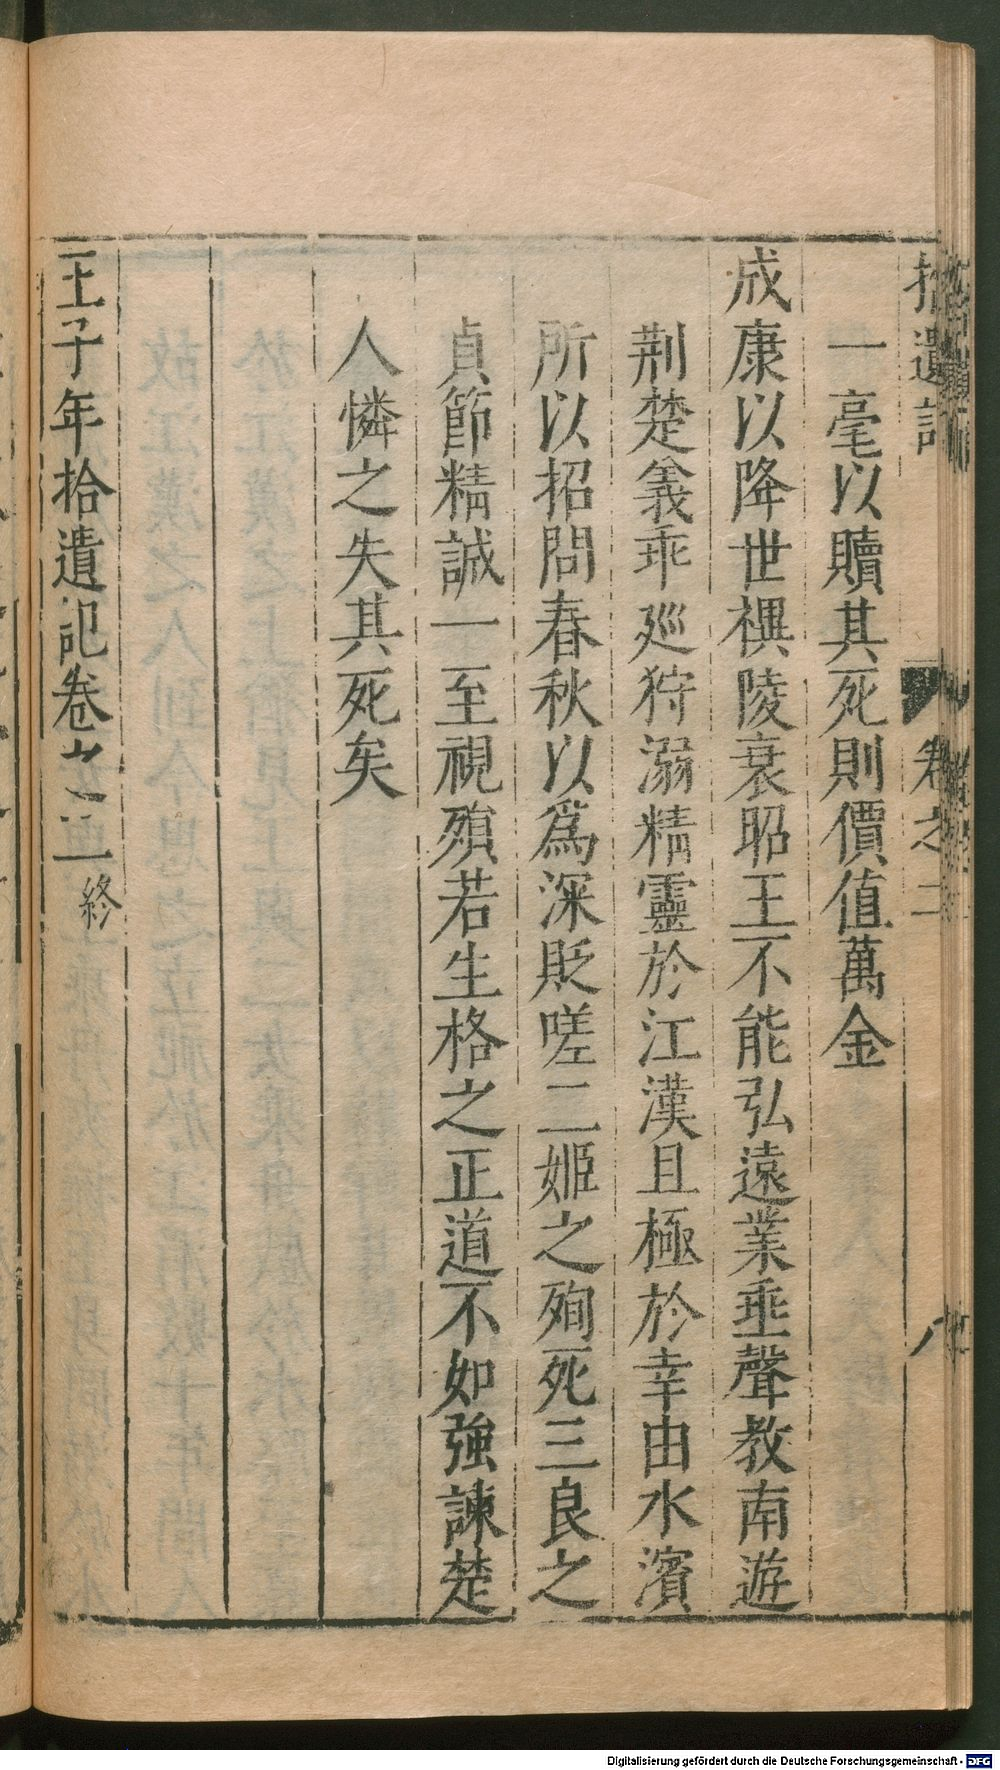 拾遺記 卷之二
一毫以贖其死則價值萬金
成康以降世禩陵衰昭王不能弘遠業垂聲教南遊
荆楚義乖廵狩溺精靈於江漢且極於幸由水濱
所以招問春秋以爲深貶嗟二姬之殉死三良之
貞節精誠一至視殞若生格之正道不如強諫楚
人憐之失其死矣
王子年拾遺記卷之二終
Digitalisierung gefördert durch die Deutsche Forschungsgemeinschaft - DFG